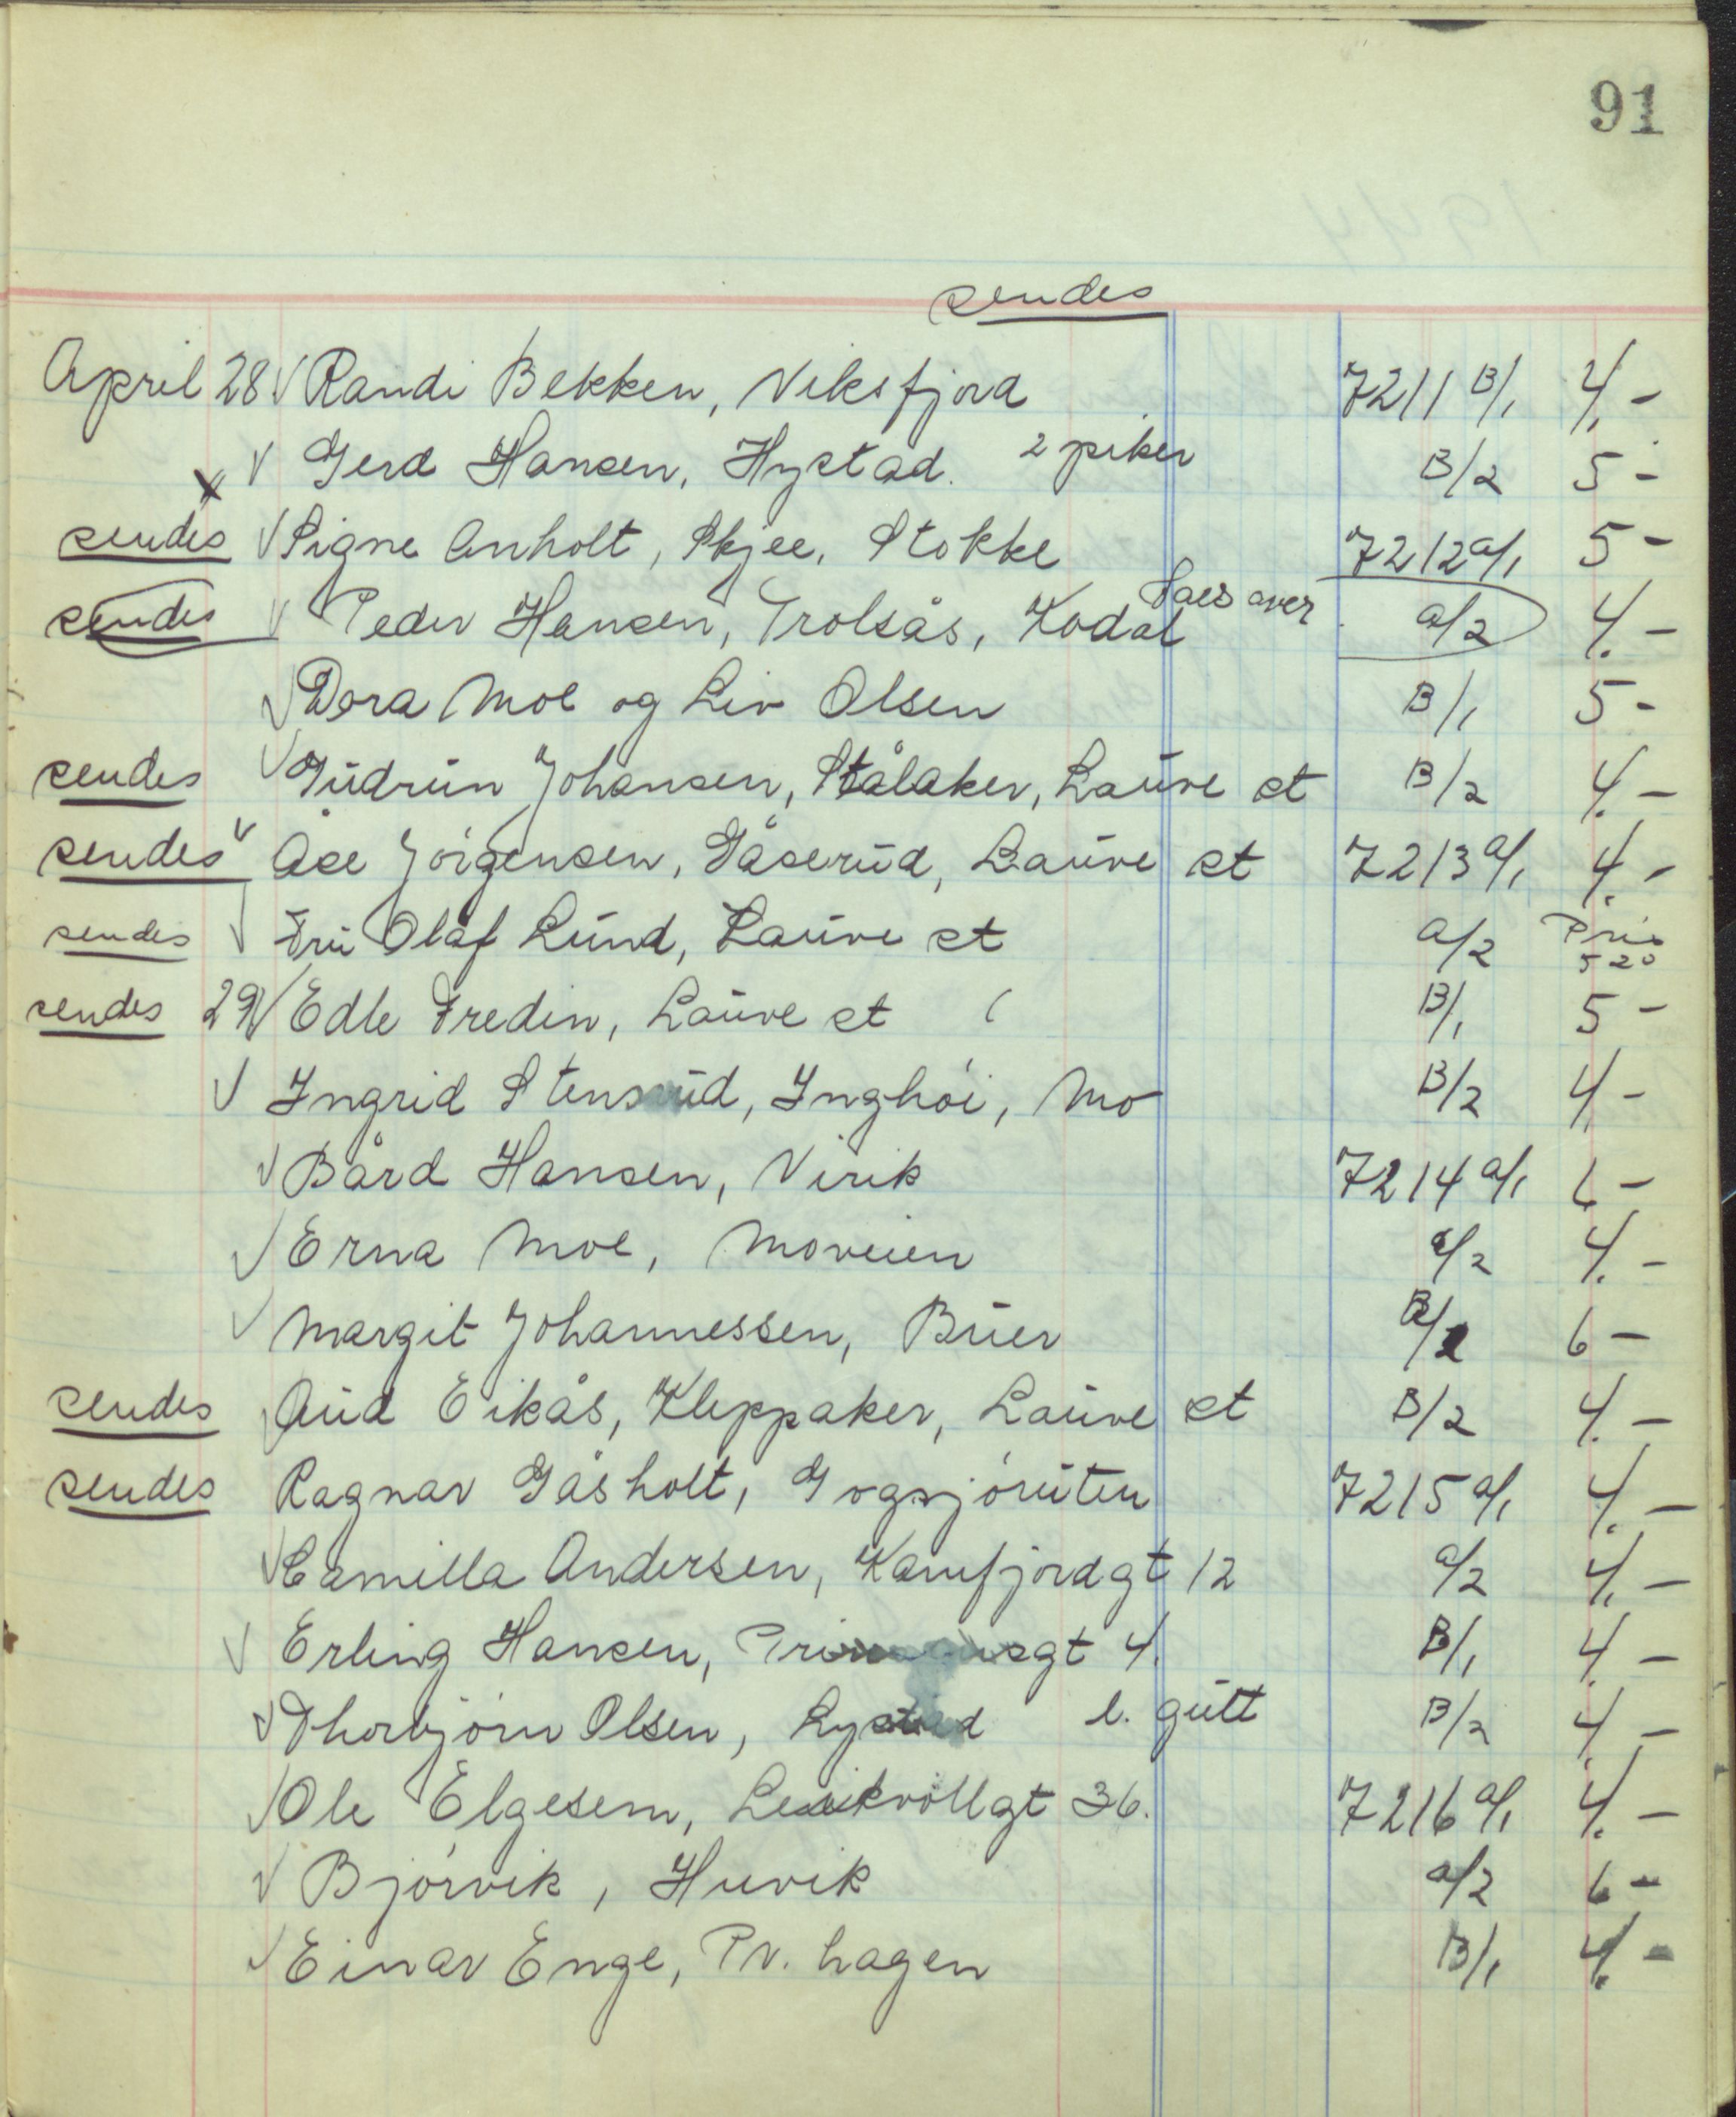 91
sendes
April 28 √ Randi Bekken, Viksfjord 7211 B/1 4.-
x √ Gerd Hansen, Hystad. 2 piker B/2 5-
sendes √ Signe Anholt, Skjee, Stokke 7212 a/1 5-
sendes √ Peder Hansen, Trolsås, Kodal Taes over a/2 4.-
√ Dora Moe og Liv Olsen B/1 5-
sendes √ Gudrun Johansen, Stålaker, Lauve st B/2 4.-
sendes √ Åse Jörgensen, Gåserud, Lauve st 7213 a/1 4.-
sendes √ Fru Olaf Lund, Lauve st a/2 Pris 520
sendes 29 √ Edle Fredin, Lauve st B/1 5-
√ Ingrid Stensrud, Inghöi, Mo B/2 4-
√ Bård Hansen, Virik 7214 a/1 6-
√ Erna Moe, Moveien a/2 4.-
√ Margit Johannessen, Buer B/1 6-
sendes Aud Eikås, Kleppaker, Lauve st B/2 4.-
sendes Ragnar Gåsholt, Gogsjöruten 7215 a/1 4.-
√ Camilla Andersen, Kamfjordgt 12 a/2 4.-
√ Erling Hansen, 4. B/1 4-
√ Thorbjörn Olsen, Lystad l. gutt B/2 4-
√ Ole Elgesem, Leikvollgt 36. 7216 a/1 4.-
√ Bjórvik, Huvik a/2 6-
√ Einar Enge, Pr. hagen B/1 4.-